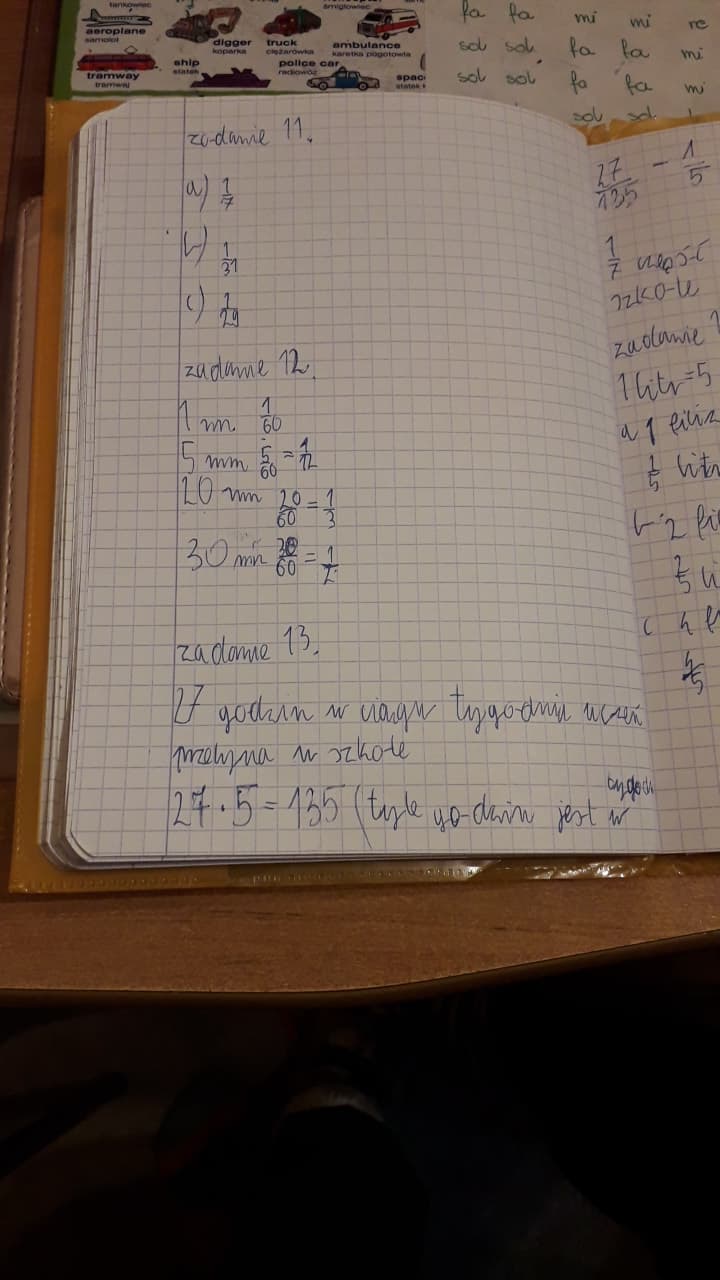 tankowiec
śmigłowiec
aeroplane
samolot
digger
koparka
truck
ciężarówka
ambulance
karetka pogotowia
ship
statek
police car
radiowóz
tramway
tramwaj
spac
statek k
fa fa mi mi re
sol sol fa fa mi
sol sol fa fa mi
sol sol
zadanie 11.
a) 1/7
b) 1/31
c) 1/29
zadanie 12.
1 min 1/60
5 min 5/60 = 1/12
20 min 20/60 = 1/3
30 min 30/60 = 1/2
zadanie 13.
27 godzin w ciągu tygodnia uczeń
w szkole
27 · 5 = 135 (tyle godzin jest w
tygodn
27/135 - 1/5
1/7 część
szkole
zadanie 1
1 litr = 5
a 1 filiż
1/5 litr
b 2 fil
2/5 li
c 4 f
4/5